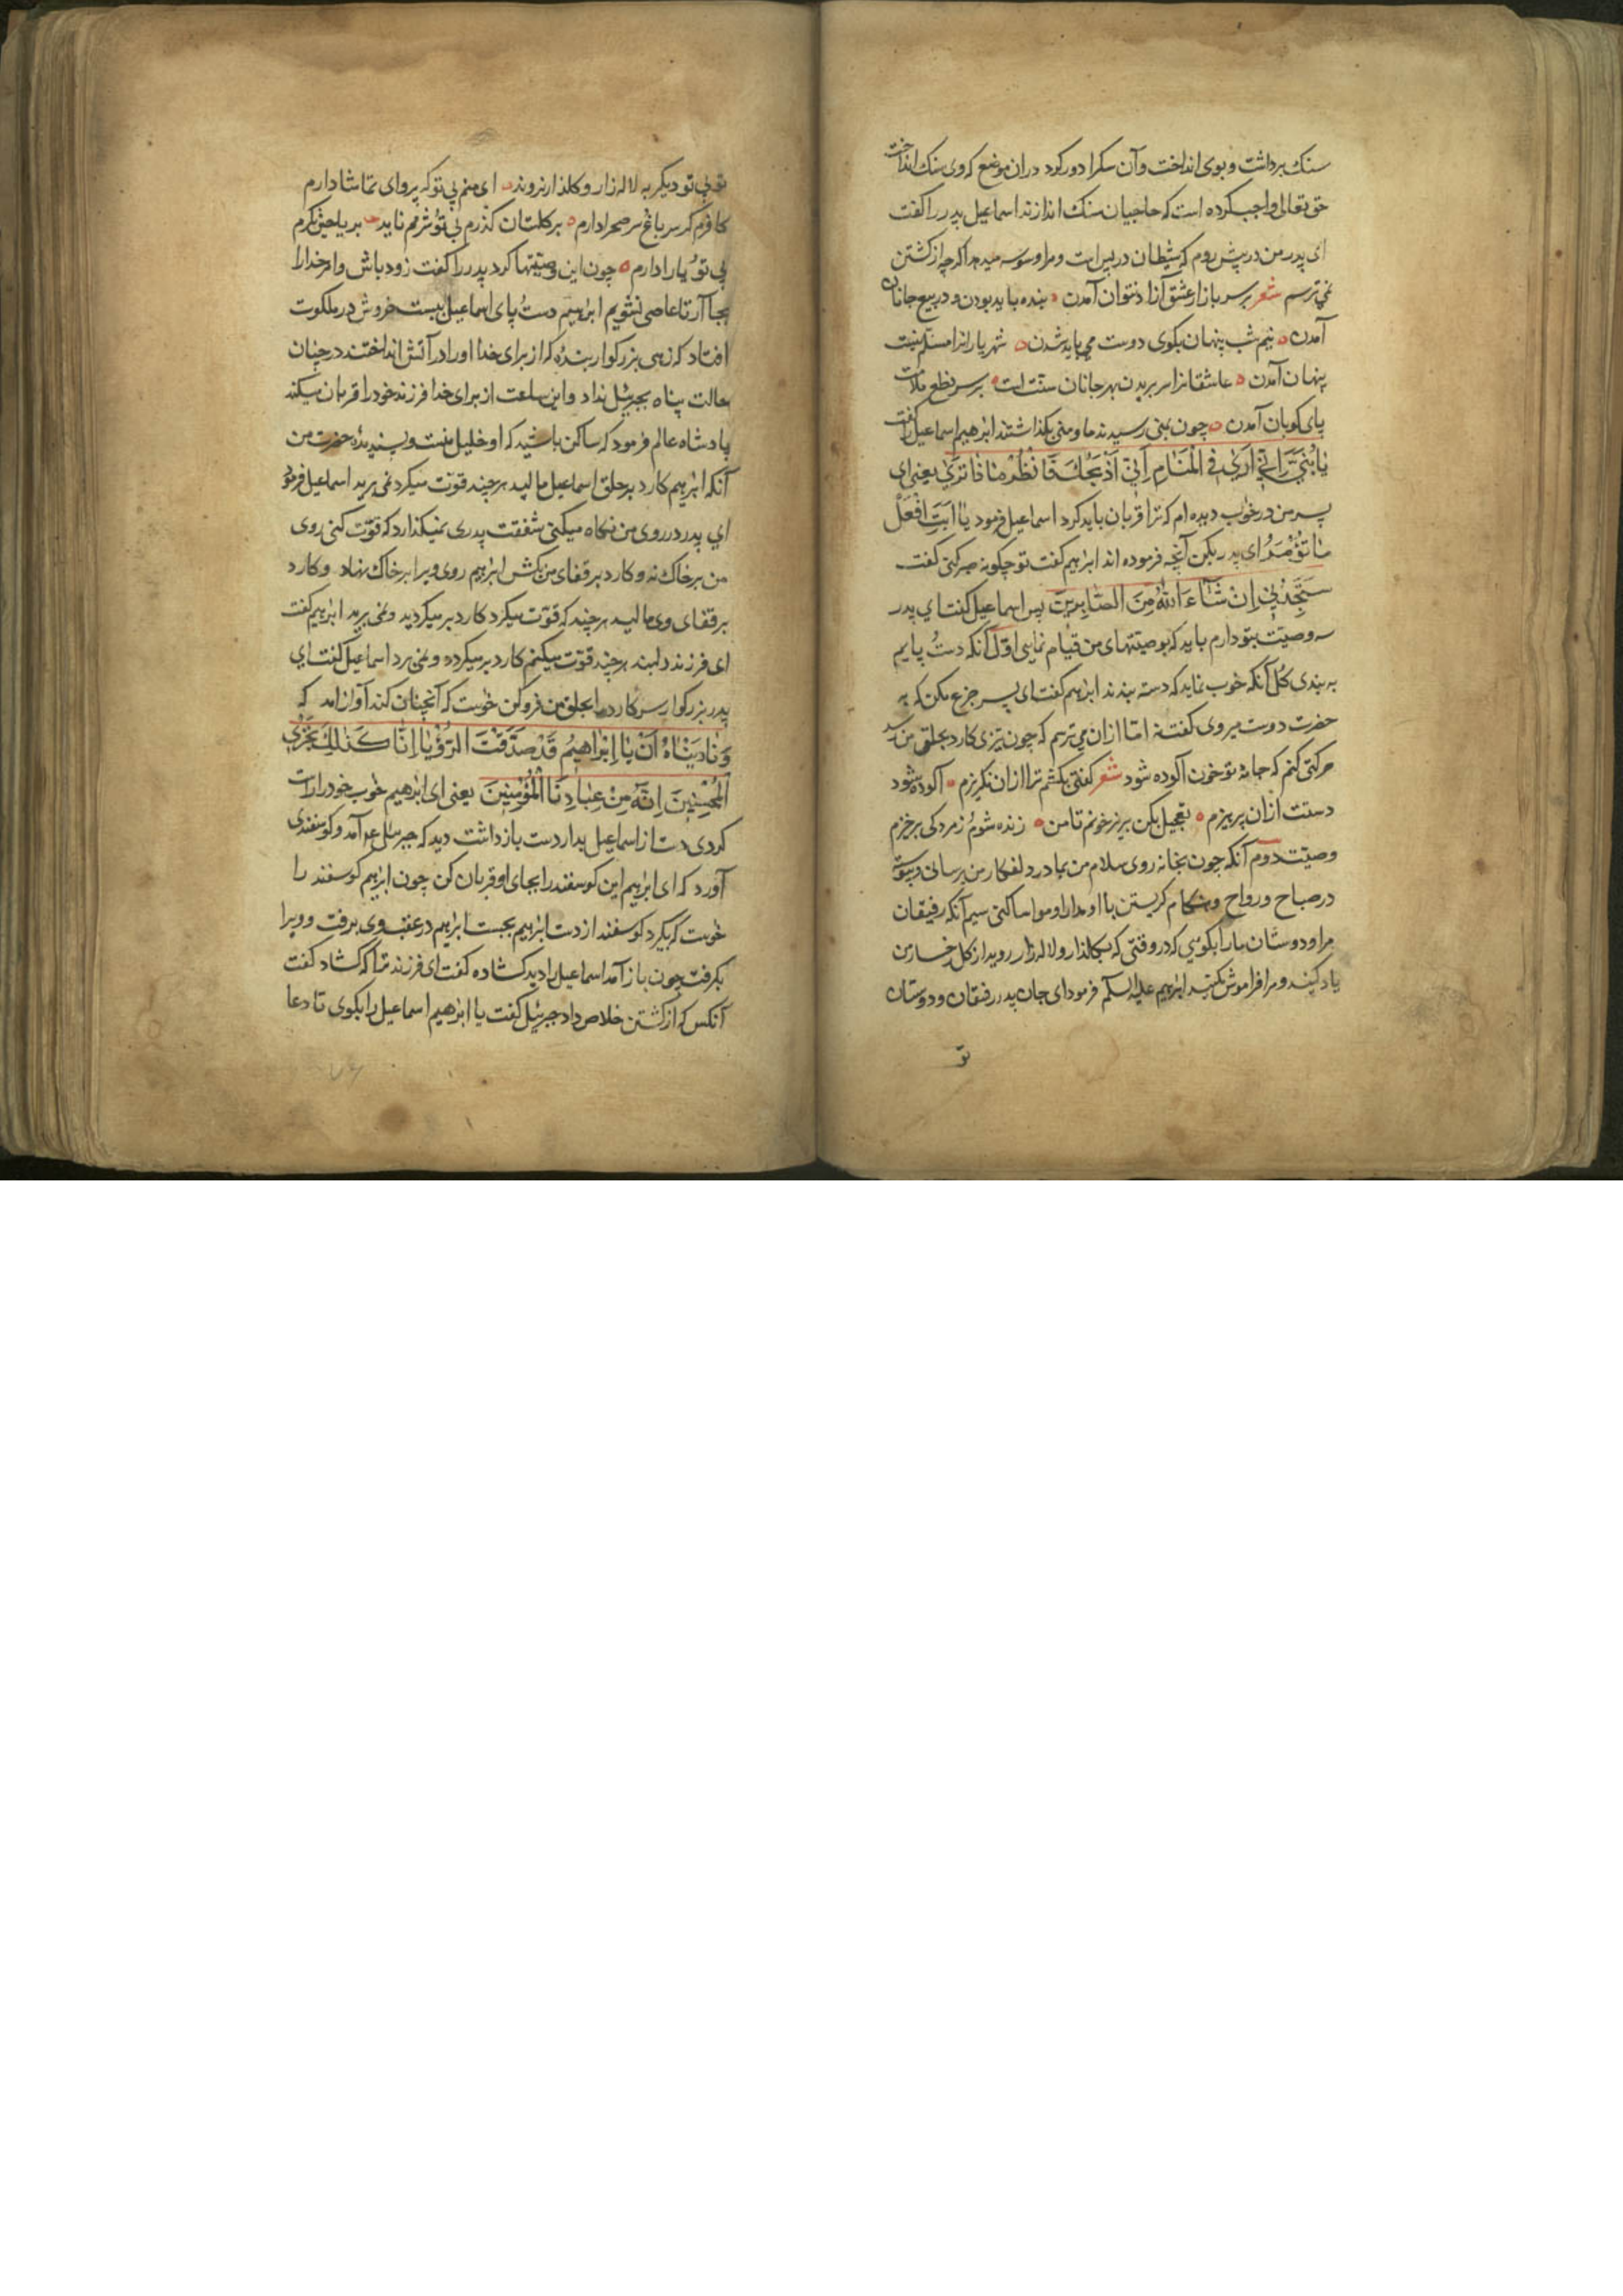 سنك برداشت و بوی انداخت و آن سكرا دور كرد در ان موضع كه وی سنك انداخت
حق تعالی واجب كرده است كه حاجیان سنك اندازند اسماعیل پدر را كفت
ای پدر من در پیش روم كه شیطان در پس است و مرا وسوسه میدهد اكر چه از كشتن
نمی ترسم شعر بر سر بازار عشق آزاد نتوان آمدن بنده باید بودن و در بیع جانان
آمدن نیم شب پنهان بكوی دوست می باید شدن شهریارانرا مسلم نیست
پنهان آمدن عاشقانرا سر بریدن بهر جانان سنت است بر سر نطع ملامت
پای كوبان آمدن چون بمنی رسیدند ما و منی بكذاشتند ابرهیم اسماعیل را كفت
یا بُنَیَّ اِنّی اَریٰ فِی الْمَنَامِ اَنّی اَذْبَحُكَ فَانْظُرْ مَاذَا تَریٰ یعنی ای
پسر من در خواب دیده ام كه ترا قربان باید كرد اسماعیل فرمود یا اَبَتِ افْعَلْ
مَا تُؤْمَرُ ای پدر بكن آنچه فرموده اند ابرهیم كفت تو چكونه صبر كنی كفت
سَتَجِدُنِی اِن شَاءَ اللّٰهُ مِنَ الصَّابِرِینَ پس اسماعیل كفت ای پدر
سه وصیت بتو دارم باید كه بوصیتهای من قیام نمایی اول آنكه دست و پایم
به بندی كل آنكه خوب نماید كه دسته بندند ابرهیم كفت ای پسر جزع مكن كه به
حضرت دوست میروی كفت نه اما ازان می ترسم كه چون تیزی كارد بحلق من رسد
حركتی كنم كه جامه تو خون آلوده شود شعر كفتی بكشم ترا ازان نكریزم آلوده شود
دستت ازان پرهیزم تعجیل مكن بریز خونم تا من زنده شوم ز مردكی برخیزم
وصیت دوم آنكه چون بخانه روی سلام من بمادر دلفكار من برسانی و پیوسته
در صباح و رواح و هنكام كریستن با او مدارا و مواسا كنی سیم آنكه رفیقان
مرا و دوستان ما را بكویی كه در وقتی كه بكلذار و لاله زار روید از كل رخسار من
یاد كنید و مرا فراموش نكنید ابرهیم علیه السلام فرمود ای جان پدر رفیقان و دوستان
تو
تو بی تو دیكر به لاله زار و كلذار نروند ای منم بی تو كه پروای تماشا دارم
كافرم كر سر باغ و سر صحرا دارم بر كلستان كذرم بی تو و شرمم ناید بر ریاحین نكرم
بی تو و یارا دارم چون این وصیتها كرد پدر را كفت زود باش و امر خدا را
بجا آر تا عاصی نشویم ابرهیم دست و پای اسماعیل ببست خروش در ملكوت
افتاد كه زهی بزركوار بنده كه از برای خدا او را در آتش انداختند در چنان
حالت پناه بجبرئیل نداد و این ساعت از برای خدا فرزند خود را قربان میكند
پادشاه عالم فرمود كه ساكن باشید كه او خلیل منست و پسندیده حضرت من
آنكه ابرهیم كارد بر حلق اسماعیل مالید هر چند قوت میكرد نمی برید اسماعیل فرمود
ای پدر در روی من نكاه میكنی شفقت پدری نمیكذارد كه قوت كنی روی
من بر خاك نه و كارد بر قفای من بكش ابرهیم روی ویرا بر خاك نهاد و كارد
بر قفای وی مالید هر چند كه قوت میكرد كارد بر میكردید و نمی برید ابرهیم كفت
ای فرزند دلبند هر چند قوت میكنم كارد بر میكردد و نمی برد اسماعیل كفت ای
پدر بزركوار سر كارد را بحلق من فرو كن خواست كه آنچنان كند آواز آمد كه
وَ نَادَیْنَاهُ اَنْ یَا اِبْرَاهِیمُ قَدْ صَدَّقْتَ الرُّؤْیَا اِنَّا كَذٰلِكَ نَجْزِی
الْمُحْسِنِینَ اِنَّهُ مِنْ عِبَادِنَا الْمُؤْمِنِینَ یعنی ای ابرهیم خواب خود را راست
كردی دست از اسماعیل بدار دست بازداشت دید كه جبرئیل ع م آمد و كوسفندی
آورد كه ای ابرهیم این كوسفند را بجای او قربان كن چون ابرهیم كوسفند را
خواست كه بكیرد كوسفند از دست ابرهیم بجست ابرهیم در عقب وی برفت و ویرا
بكرفت چون باز آمد اسماعیل را دید كشاده كفت ای فرزند ترا كه كشاد كفت
آنكس كه از كشتن خلاص داد جبرئیل كفت یا ابرهیم اسماعیل را بكوی تا دعا